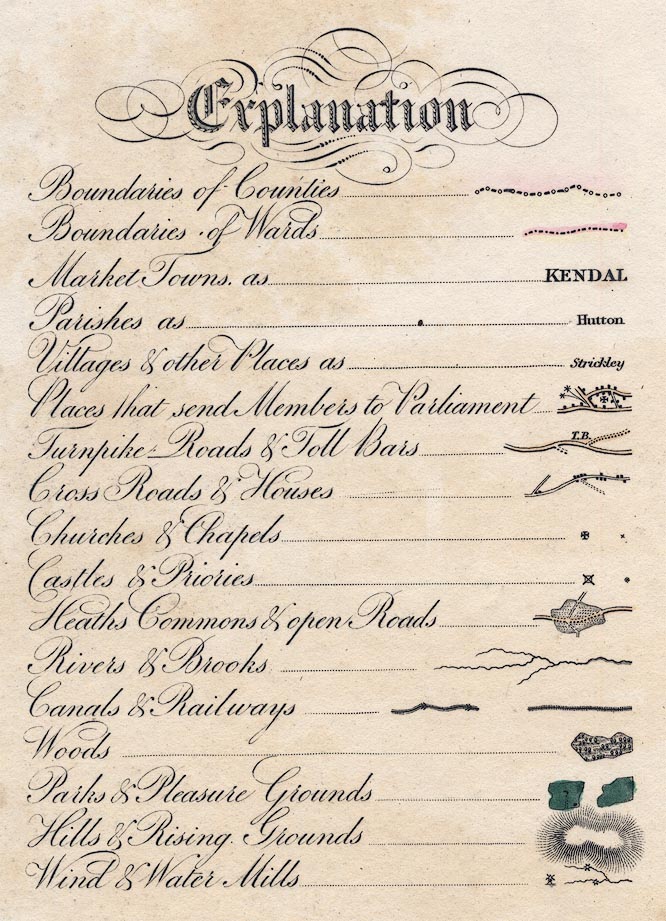 Explanation
Boundaries of Counties
Boundaries of Wards
Market Towns. as KENDAL
Parishes as Hutton
Villages & other Places as Strickley
Places that send Members to Parliament
Turnpike Roads & Toll Bars T.B.
Cross Roads & Houses
Churches & Chapels
Castles & Priories
Heaths Commons & open Roads
Rivers & Brooks
Canals & Railways
Woods
Parks & Pleasure Grounds
Hills & Rising Grounds
Wind & Water Mills